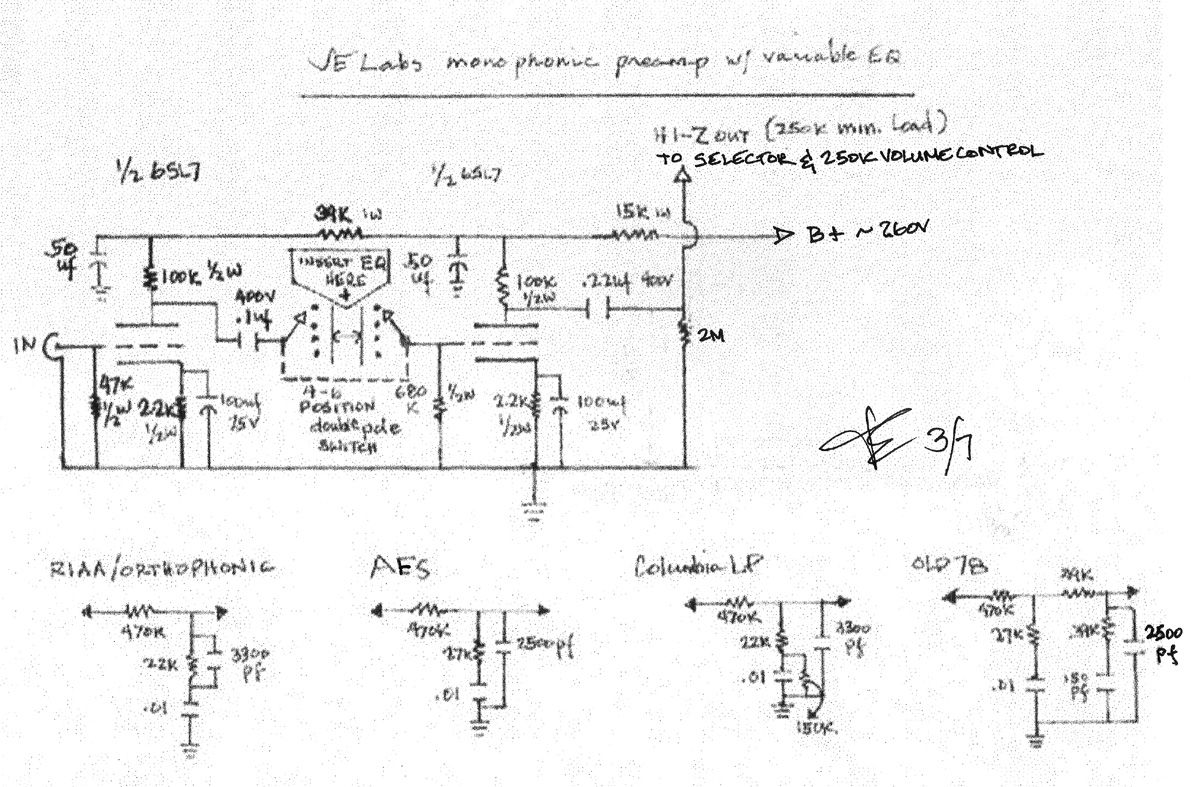 JE Labs monophonic preamp w/ variable EQ
HI-Z OUT (250K min. Load)
TO SELECTOR & 250K VOLUME CONTROL
1/2 6SL7
1/2 6SL7
39K 1W
15K 1W
B+ ~260V
.50
uf
100K 1/2W
INSERT EQ
HERE
+
.50
uf
100K
1/2W
.22uf 400V
400V
.1uf
IN
2M
47K
1/2W
2.2K
1/2W
100uf
25V
4-6
POSITION
double pole
SWITCH
680
K
1/2W
2.2K
1/2W
100uf
25V
JE 3/7
RIAA/ORTHOPHONIC
470K
22K
3300
pf
.01
AES
470K
27K
2500pf
.01
Columbia LP
470K
22K
3300
pf
.01
150K.
OLD 78
470K
39K
27K
39K
2500
pf
.01
pf